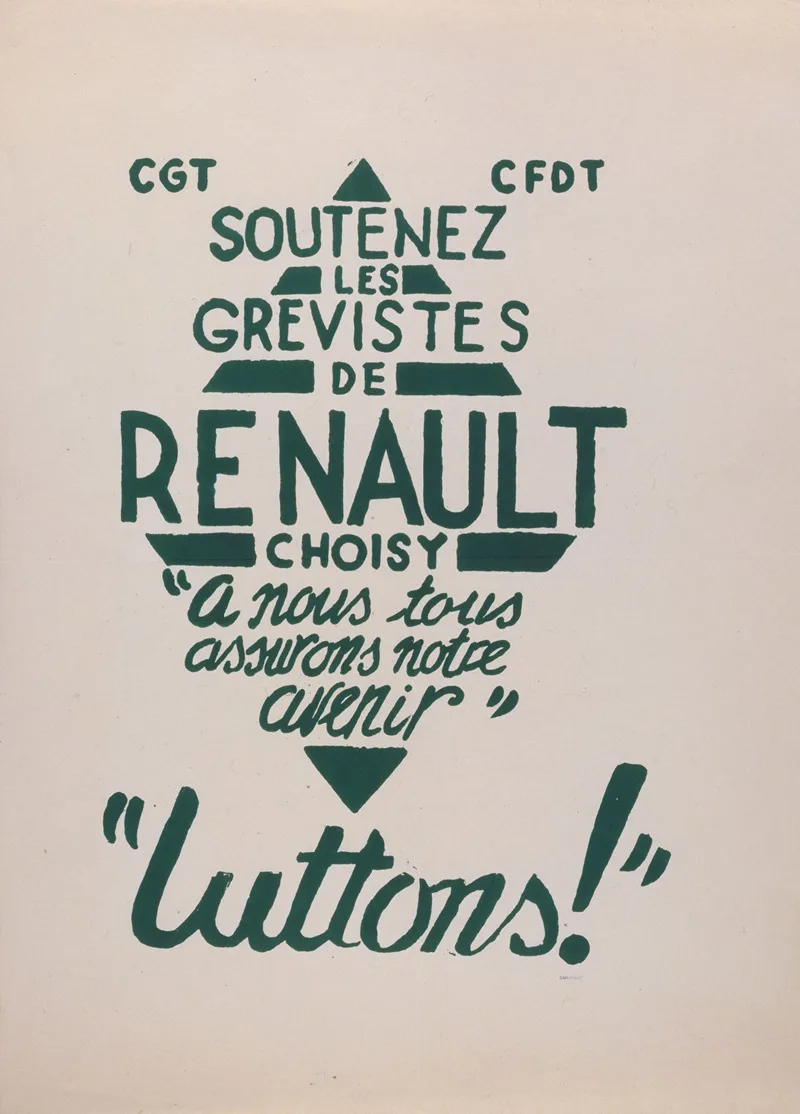 CGT CFDT
SOUTENEZ
LES
GREVISTES
DE
RENAULT
CHOISY
"a nous tous
assurons notre
avenir"
"luttons!"